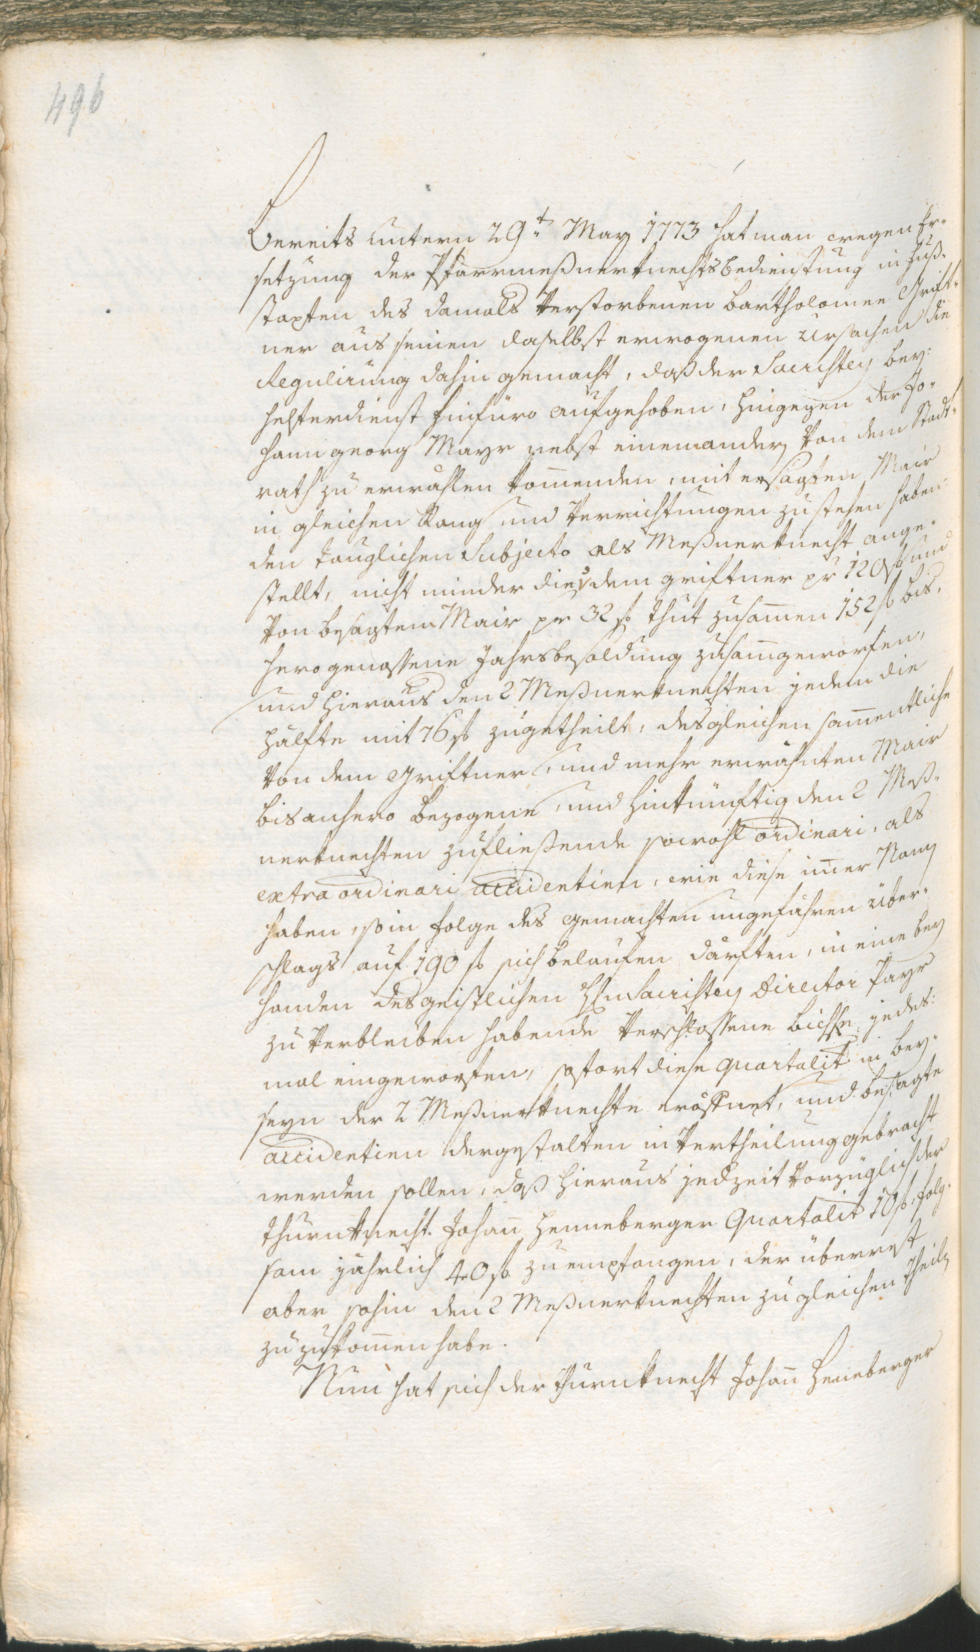 496
Bereits untern 29.t May 1773 hat man wegen Er-
setzung der Pfarrmeßnerknechtsbedienstung in Fuß-
stapfen des damals verstorbenen Bartholomee Grift-
ner aus seinen daselbst erwogenen Ursachen die
Regulirung dahin gemacht, daß der Sacristey bey-
helferdienst hinfüro aufgehoben, hingegen der Jo-
hann georg Mayr nebst einem andern von dem Stadt-
rath zu erwählen kommenden, mit ersagten Mair
in gleichen Rang und Verrichtungen zu stehen haben-
den tauglichen Subjecto als Meßnerknecht ange-
stellt, nicht minder die dem griftner pr 120 f und
von besagtem Mair pr 32 f thut zusamen 152 f bis-
hero genossene Jahrsbesoldung zusamgeworfen,
und hieraus den 2 Meßnerknechten jedem die
Hälfte mit 76 f zugetheilt, desgleichen sammentliche
von dem Griftner, und mehr erwähnten Mair
bis anhero bezogene, und hinkünftig den 2 Meß-
nerknechten zufließende sowohl ordinari, als
extra ordinari accidentien, wie diese imer Namen
haben, so in folge des gemachten ungefähren über-
schlags auf 190 f sich belaufen därften, in eine bey
handen des geistlichen H: Sacristey Director Payr
zu verbleiben habende verschlossene bichse jedes-
mal eingeworfen, sofort diese quartalit in bey-
seyn der 2 Meßnerknechte eröffnet, und besagte
accidentien dergestalten in Vertheilung gebracht
werden sollen, daß hieraus jedzeit vorzüglich der
thurnknecht Johann Henneberger Quartalit 10 f, folg-
sam jährlich 40 f zu empfangen, der überrest
aber sohin den 2 Meßnerknechten zu gleichen theilen
zuzukommen habe.
Nun hat sich der thurnknecht Johann Heneberger